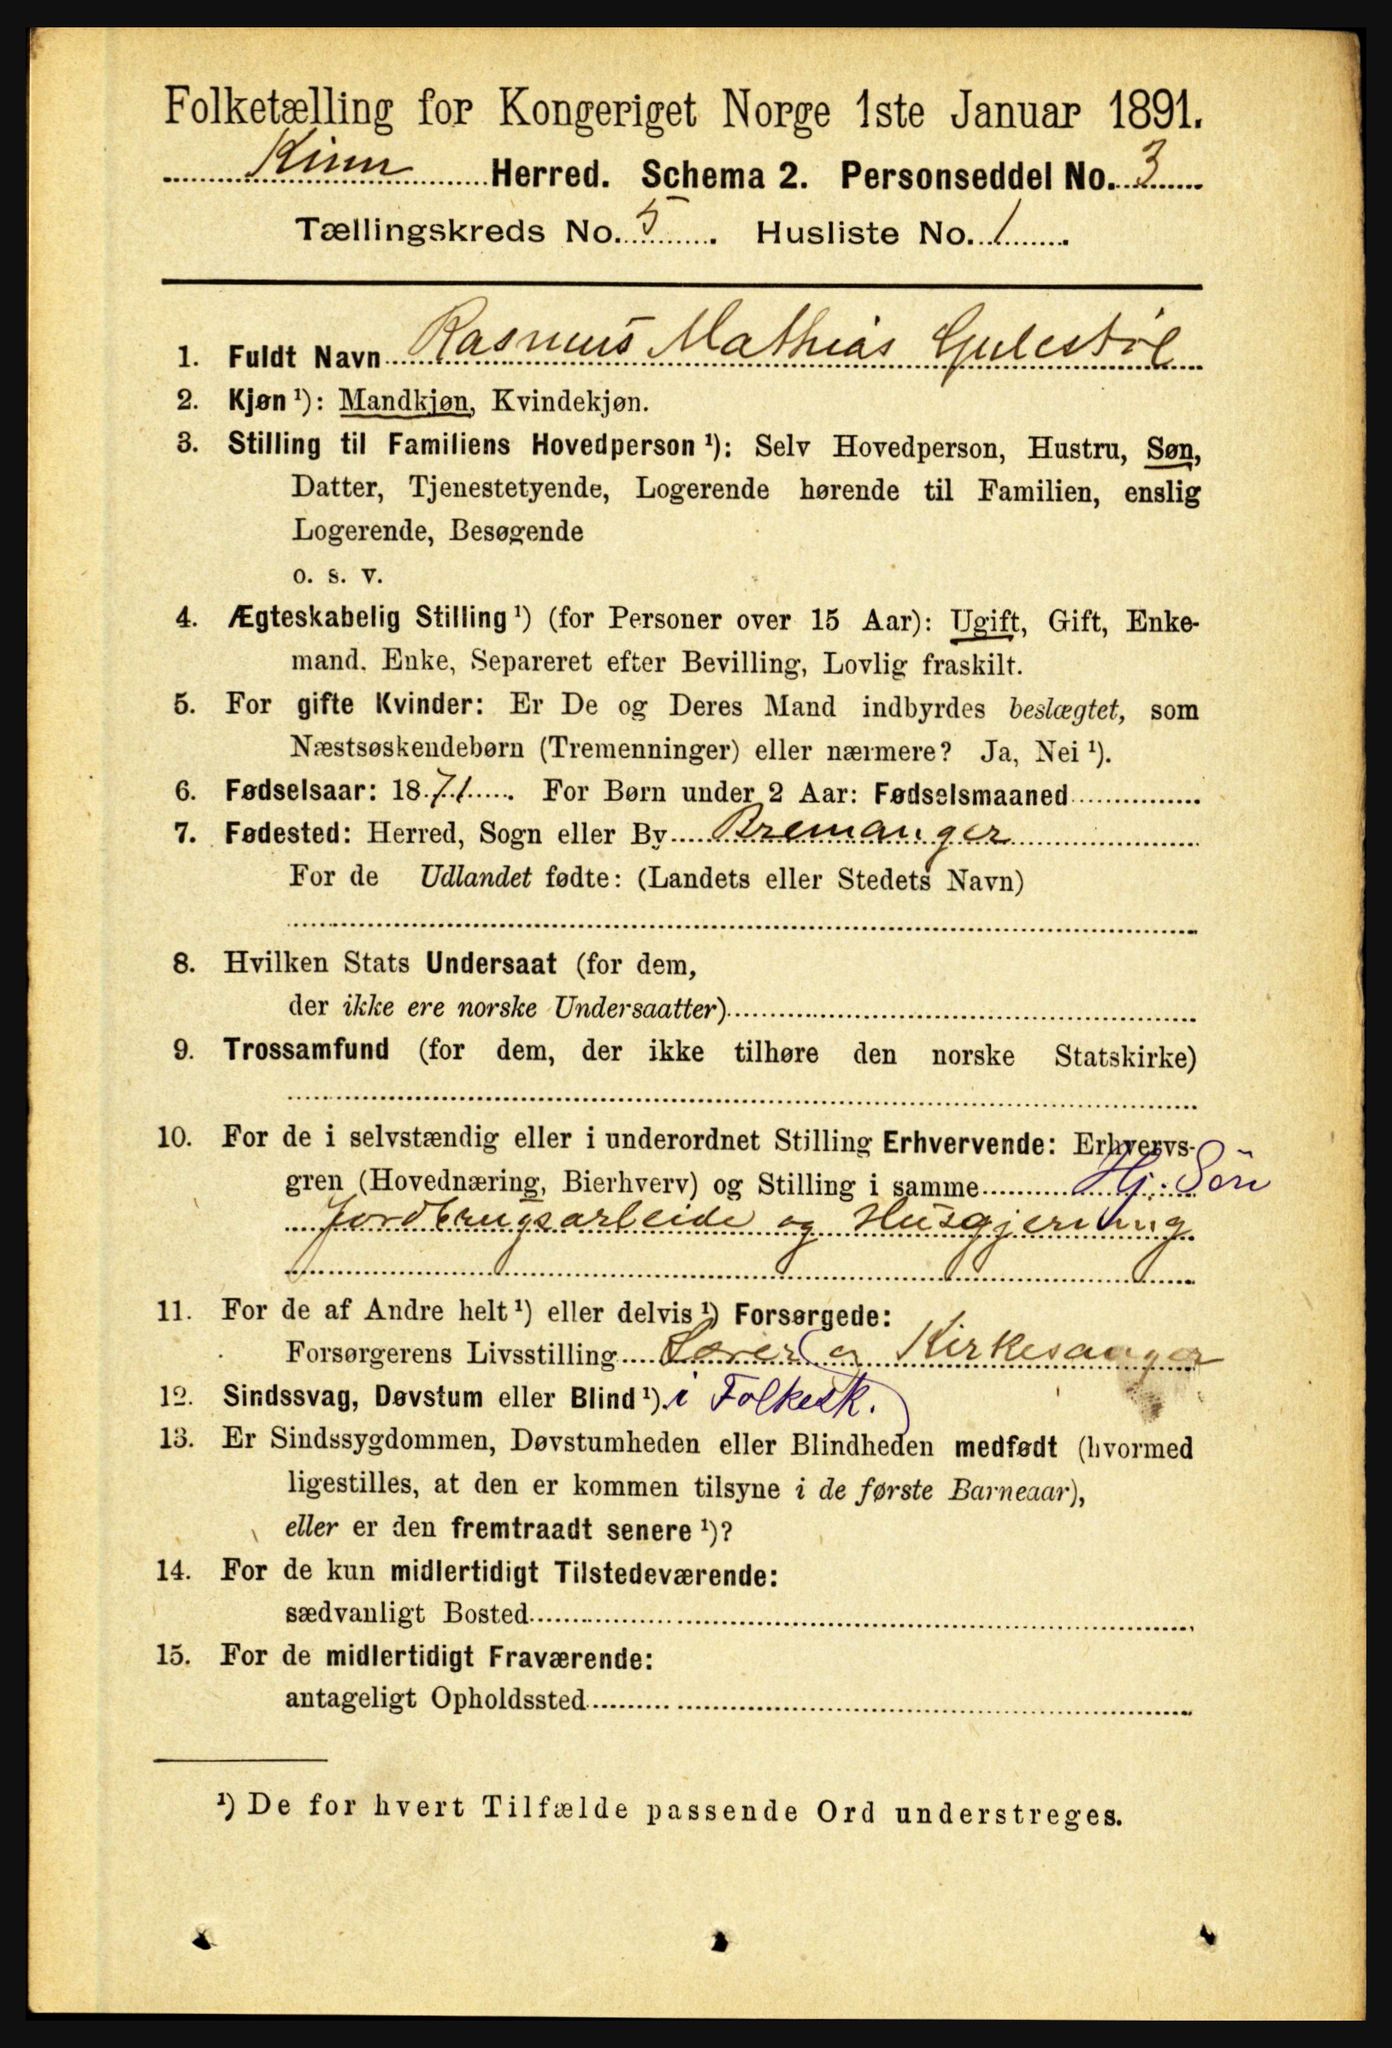 Folketælling for Kongeriget Norge 1ste Januar 1891.
Kinn Herred. Schema 2. Personseddel No. 3
Tællingskreds No. 5. Husliste No. 1.
1. Fuldt Navn Rasmus Mathias Gulestøl
2. Kjøn ¹): Mandkjøn, Kvindekjøn.
3. Stilling til Familiens Hovedperson ¹): Selv Hovedperson, Hustru, Søn,
Datter, Tjenestetyende, Logerende hørende til Familien, enslig
Logerende, Besøgende
o. s. v.
4. Ægteskabelig Stilling ¹) (for Personer over 15 Aar): Ugift, Gift, Enke-
mand, Enke, Separeret efter Bevilling, Lovlig fraskilt.
5. For gifte Kvinder: Er De og Deres Mand indbyrdes beslægtet, som
Næstsøskendebørn (Tremenninger) eller nærmere? Ja, Nei ¹).
6. Fødselsaar: 1871. For Børn under 2 Aar: Fødselsmaaned
7. Fødested: Herred, Sogn eller By Bremanger
For de Udlandet fødte: (Landets eller Stedets Navn)
8. Hvilken Stats Undersaat (for dem,
der ikke ere norske Undersaatter)
9. Trossamfund (for dem, der ikke tilhøre den norske Statskirke)
10. For de i selvstændig eller i underordnet Stilling Erhvervende: Erhvervs-
gren (Hovednæring, Bierhverv) og Stilling i samme Hj. Søn
Jordbrugsarbeide og Husgjerning
11. For de af Andre helt ¹) eller delvis ¹) Forsørgede:
Forsørgerens Livsstilling Lærer og Kirkesanger
12. Sindssvag, Døvstum eller Blind ¹). i Folkesk.
13. Er Sindssygdommen, Døvstumheden eller Blindheden medfødt (hvormed
ligestilles, at den er kommen tilsyne i de første Barneaar),
eller er den fremtraadt senere ¹)?
14. For de kun midlertidigt Tilstedeværende:
sædvanligt Bosted
15. For de midlertidigt Fraværende:
antageligt Opholdssted
¹) De for hvert Tilfælde passende Ord understreges.